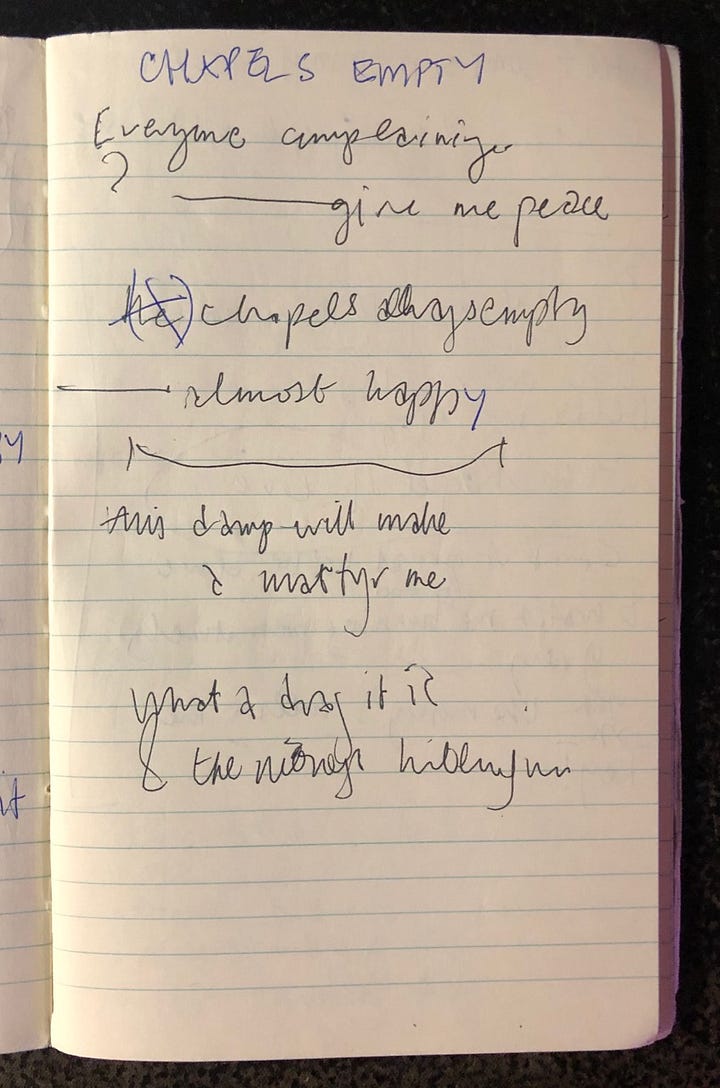 CHAPELS EMPTY
Everyone complaining
?
give me peace
the chapels always empty
almost happy
this damp will make
a martyr me
What a drag it is
& the